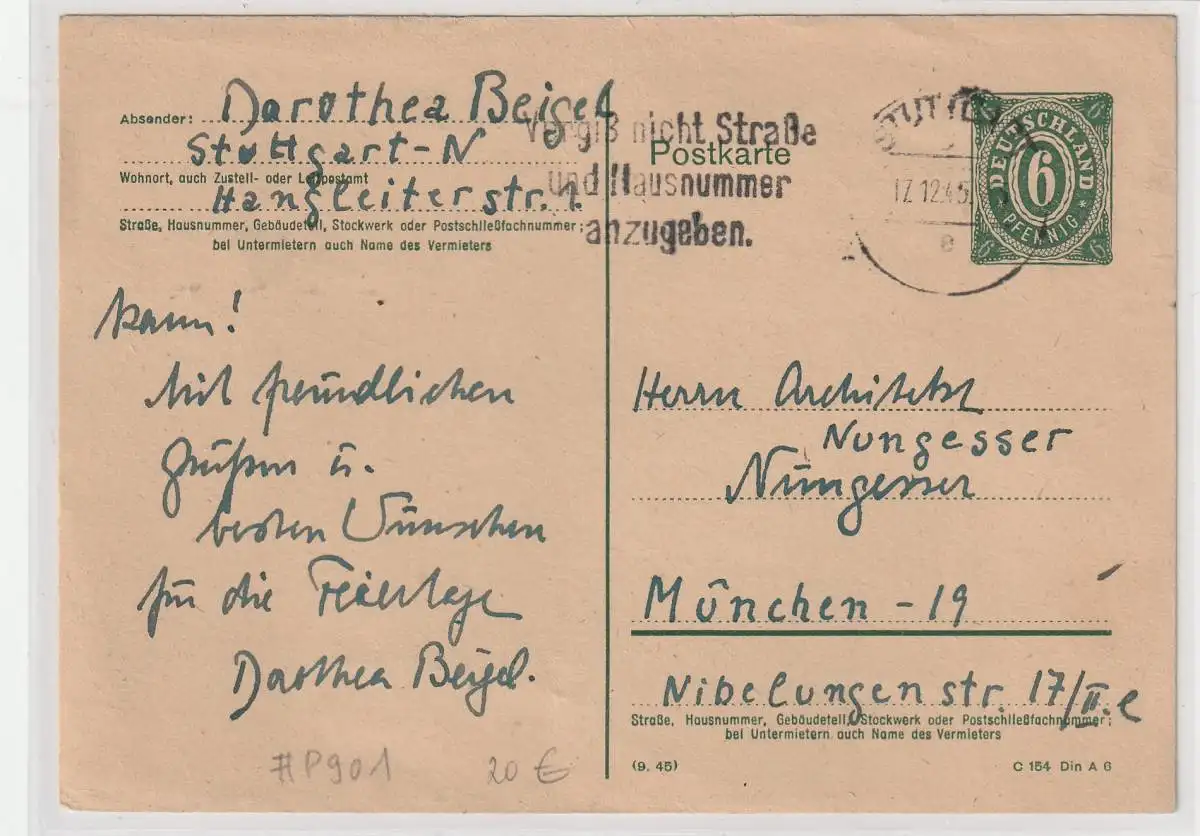 Absender: Dorothea Beigel
Stuttgart-N
Wohnort, auch Zustell- oder Leitpostamt
Hangleiterstr. 1.
Straße, Hausnummer, Gebäudeteil, Stockwerk oder Postschließfachnummer;
bei Untermietern auch Name des Vermieters
Vergiß nicht Straße
und Hausnummer
anzugeben.
Postkarte
STUTTG
17.12.45
e
DEUTSCHLAND
6
PFENNIG
6
6
6
6
kann!
Mit freundlichen
Grüßen u.
besten Wünschen
für die Feiertage
Dorothea Beigel.
Herrn Architekt
Nungesser
Nungesser
München - 19
Nibelungenstr. 17/II. e
Straße, Hausnummer, Gebäudeteil, Stockwerk oder Postschließfachnummer;
bei Untermietern auch Name des Vermieters
(9. 45)
C 154 Din A 6
#P901
20 €